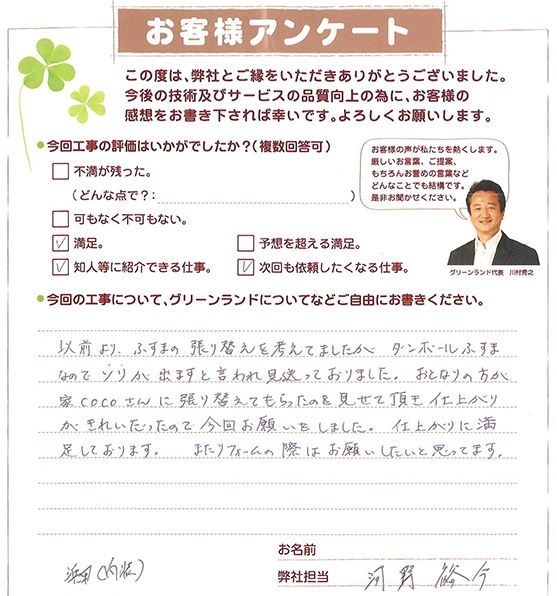 お客様アンケート
この度は、弊社とご縁をいただきありがとうございました。
今後の技術及びサービスの品質向上の為に、お客様の
感想をお書き下されば幸いです。よろしくお願いします。
今回工事の評価はいかがでしたか?(複数回答可)
不満が残った。
(どんな点で?: )
可もなく不可もない。
満足。
予想を超える満足。
知人等に紹介できる仕事。
次回も依頼したくなる仕事。
お客様の声が私たちを熱くします。
厳しいお言葉、ご提案、
もちろんお誉めの言葉など
どんなことでも結構です。
是非お聞かせください。
グリーンランド代表 川村秀之
今回の工事について、グリーンランドについてなどご自由にお書きください。
以前より、ふすまの張り替えを考えてましたが ダンボールふすま
なので ソリが出ますと言われ見送っておりました。おとなりの方が
家COCOさんに張り替えてもらったのを見せて頂き 仕上がり
がきれいだったので今回お願いをしました。仕上がりに満
足しております。 またリフォームの際はお願いしたいと思ってます。
お名前
弊社担当 河野
(内装)